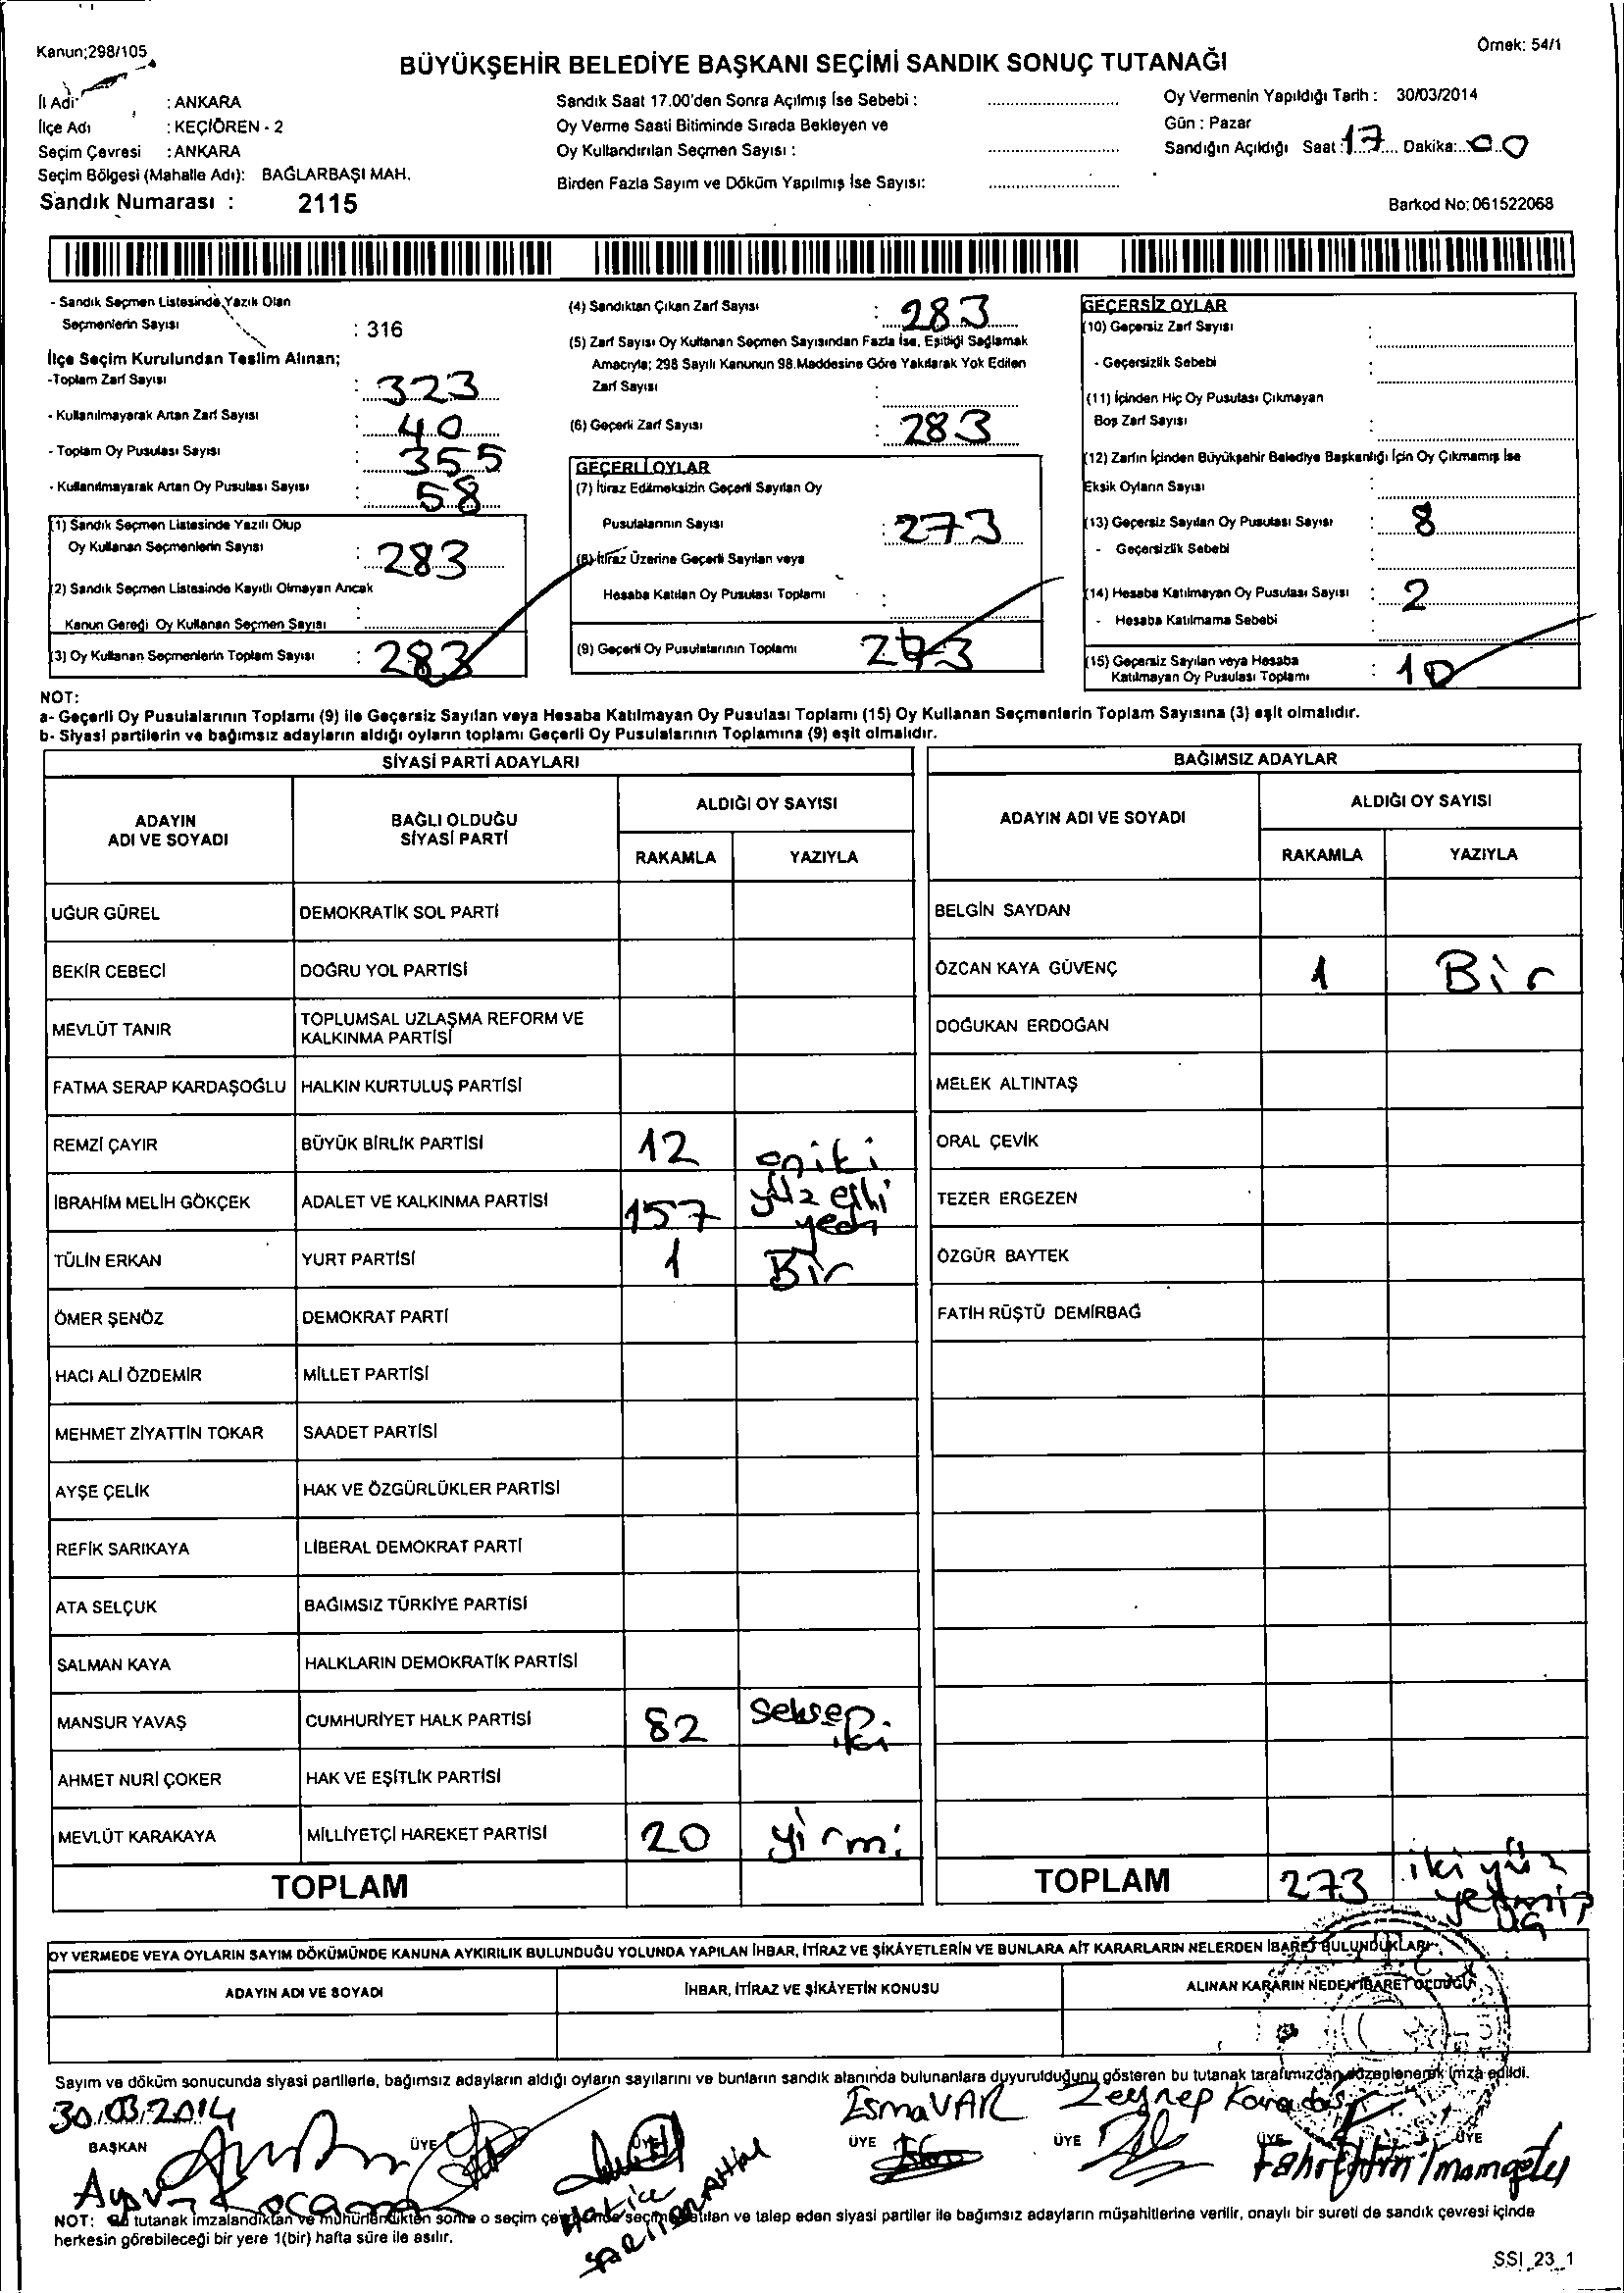 Kanun:298/105
Örnek: 54/1
BÜYÜKŞEHİR BELEDİYE BAŞKANI SEÇİMİ SANDIK SONUÇ TUTANAĞI
İl Adı : ANKARA
İlçe Adı : KEÇİÖREN - 2
Seçim Çevresi : ANKARA
Seçim Bölgesi (Mahalle Adı): BAĞLARBAŞI MAH.
Sandık Numarası : 2115
Sandık Saat 17.00'den Sonra Açılmış İse Sebebi :
Oy Verme Saati Bitiminde Sırada Bekleyen ve
Oy Kullandırılan Seçmen Sayısı :
Birden Fazla Sayım ve Döküm Yapılmış İse Sayısı:
Oy Vermenin Yapıldığı Tarih : 30/03/2014
Gün : Pazar
Sandığın Açıldığı Saat : 17 Dakika: 00
Barkod No: 061522068
- Sandık Seçmen Listesinde Yazılı Olan
Seçmenlerin Sayısı : 316
İlçe Seçim Kurulundan Teslim Alınan;
-Toplam Zarf Sayısı : 323
- Kullanılmayarak Artan Zarf Sayısı : 40
- Toplam Oy Pusulası Sayısı : 355
- Kullanılmayarak Artan Oy Pusulası Sayısı : 58
(1) Sandık Seçmen Listesinde Yazılı Olup
Oy Kullanan Seçmenlerin Sayısı : 283
(2) Sandık Seçmen Listesinde Kayıtlı Olmayan Ancak
Kanun Gereği Oy Kullanan Seçmen Sayısı :
(3) Oy Kullanan Seçmenlerin Toplam Sayısı : 283
(4) Sandıktan Çıkan Zarf Sayısı : 283
(5) Zarf Sayısı Oy Kullanan Seçmen Sayısından Fazla İse, Eşitliği Sağlamak
Amacıyla; 298 Sayılı Kanunun 98.Maddesine Göre Yakılarak Yok Edilen
Zarf Sayısı :
(6) Geçerli Zarf Sayısı : 283
GEÇERLİ OYLAR
(7) İtiraz Edilmeksizin Geçerli Sayılan Oy
Pusulalarının Sayısı : 273
(8) İtiraz Üzerine Geçerli Sayılan veya
Hesaba Katılan Oy Pusulası Toplamı :
(9) Geçerli Oy Pusulalarının Toplamı 273
GEÇERSİZ OYLAR
(10) Geçersiz Zarf Sayısı :
- Geçersizlik Sebebi :
(11) İçinden Hiç Oy Pusulası Çıkmayan
Boş Zarf Sayısı :
(12) Zarfın İçinden Büyükşehir Belediye Başkanlığı İçin Oy Çıkmamış İse
Eksik Oyların Sayısı :
(13) Geçersiz Sayılan Oy Pusulası Sayısı : 8
- Geçersizlik Sebebi :
(14) Hesaba Katılmayan Oy Pusulası Sayısı : 2
- Hesaba Katılmama Sebebi :
(15) Geçersiz Sayılan veya Hesaba
Katılmayan Oy Pusulası Toplamı : 10
NOT:
a- Geçerli Oy Pusulalarının Toplamı (9) ile Geçersiz Sayılan veya Hesaba Katılmayan Oy Pusulası Toplamı (15) Oy Kullanan Seçmenlerin Toplam Sayısına (3) eşit olmalıdır.
b- Siyasi partilerin ve bağımsız adayların aldığı oyların toplamı Geçerli Oy Pusulalarının Toplamına (9) eşit olmalıdır.
SİYASİ PARTİ ADAYLARI
ADAYIN ADI VE SOYADI
BAĞLI OLDUĞU SİYASİ PARTİ
ALDIĞI OY SAYISI
RAKAMLA YAZIYLA
UĞUR GÜREL DEMOKRATİK SOL PARTİ
BEKİR CEBECİ DOĞRU YOL PARTİSİ
MEVLÜT TANIR TOPLUMSAL UZLAŞMA REFORM VE KALKINMA PARTİSİ
FATMA SERAP KARDAŞOĞLU HALKIN KURTULUŞ PARTİSİ
REMZİ ÇAYIR BÜYÜK BİRLİK PARTİSİ 12 oniki
İBRAHİM MELİH GÖKÇEK ADALET VE KALKINMA PARTİSİ 157 yüz elli yedi
TÜLİN ERKAN YURT PARTİSİ 1 Bir
ÖMER ŞENÖZ DEMOKRAT PARTİ
HACI ALİ ÖZDEMİR MİLLET PARTİSİ
MEHMET ZİYATTİN TOKAR SAADET PARTİSİ
AYŞE ÇELİK HAK VE ÖZGÜRLÜKLER PARTİSİ
REFİK SARIKAYA LİBERAL DEMOKRAT PARTİ
ATA SELÇUK BAĞIMSIZ TÜRKİYE PARTİSİ
SALMAN KAYA HALKLARIN DEMOKRATİK PARTİSİ
MANSUR YAVAŞ CUMHURİYET HALK PARTİSİ 82 seksen iki
AHMET NURİ ÇOKER HAK VE EŞİTLİK PARTİSİ
MEVLÜT KARAKAYA MİLLİYETÇİ HAREKET PARTİSİ 20 yirmi
TOPLAM
BAĞIMSIZ ADAYLAR
ADAYIN ADI VE SOYADI
ALDIĞI OY SAYISI
RAKAMLA YAZIYLA
BELGİN SAYDAN
ÖZCAN KAYA GÜVENÇ 1 Bir
DOĞUKAN ERDOĞAN
MELEK ALTINTAŞ
ORAL ÇEVİK
TEZER ERGEZEN
ÖZGÜR BAYTEK
FATİH RÜŞTÜ DEMİRBAĞ
TOPLAM 273 iki yüz yetmiş üç
OY VERMEDE VEYA OYLARIN SAYIM DÖKÜMÜNDE KANUNA AYKIRILIK BULUNDUĞU YOLUNDA YAPILAN İHBAR, İTİRAZ VE ŞİKÂYETLERİN VE BUNLARA AİT KARARLARIN NELERDEN İBARET BULUNDUKLARI
ADAYIN ADI VE SOYADI
İHBAR, İTİRAZ VE ŞİKÂYETİN KONUSU
ALINAN KARARIN NEDEN İBARET OLDUĞU
Sayım ve döküm sonucunda siyasi partilerle, bağımsız adayların aldığı oyların sayılarını ve bunların sandık alanında bulunanlara duyurulduğunu gösteren bu tutanak tarafımızdan düzenlenerek imza edildi.
30/03/2014
Esma VAR
Zeynep
BAŞKAN ÜYE ÜYE ÜYE ÜYE ÜYE ÜYE
Hatice
Fahrettin
NOT: Bu tutanak imzalandıktan ve mühürlendikten sonra o seçim çevresinde seçime katılan ve talep eden siyasi partiler ile bağımsız adayların müşahitlerine verilir, onaylı bir sureti de sandık çevresi içinde
herkesin görebileceği bir yere 1(bir) hafta süre ile asılır.
SSI_23_1